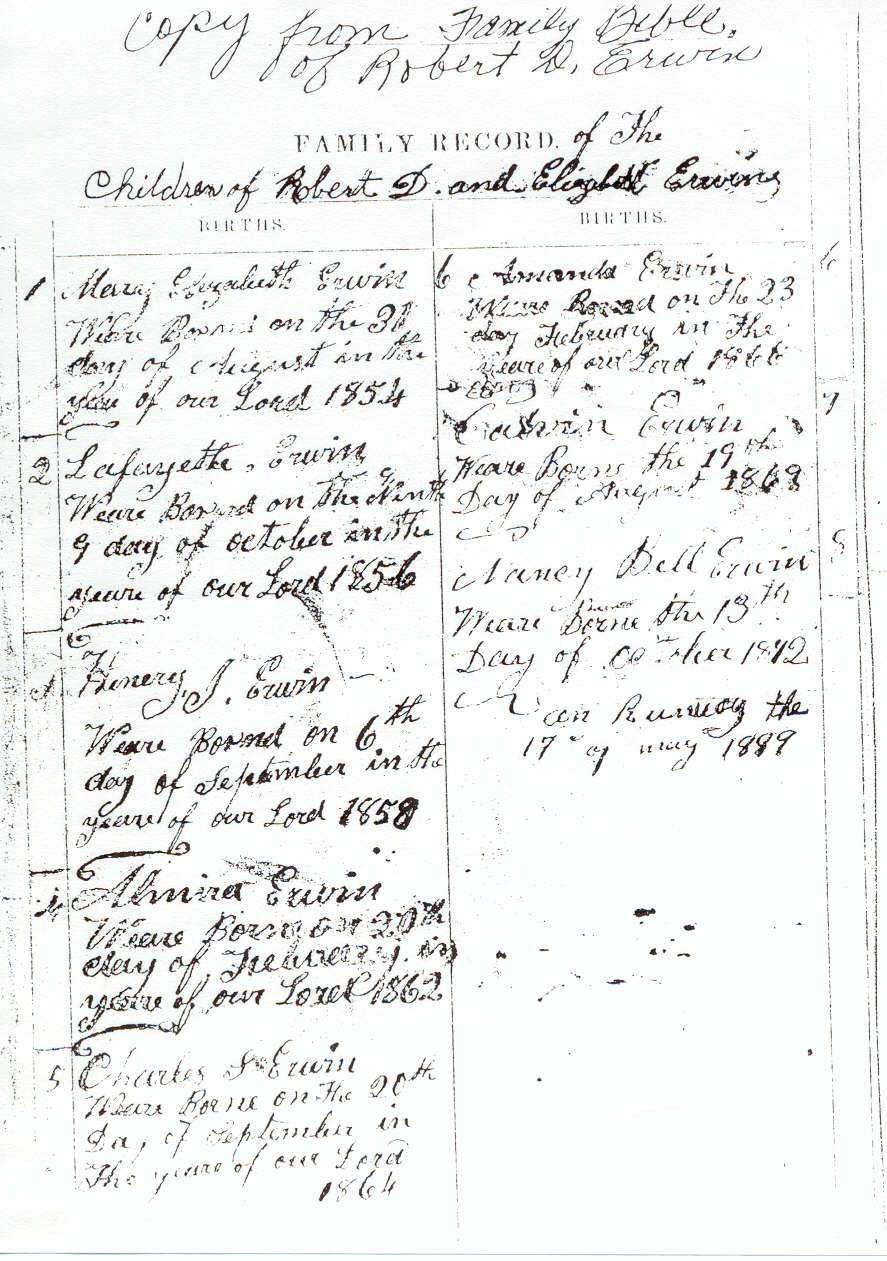 Copy from Family Bible
of Robert D. Erwin
FAMILY RECORD. of The
Children of Robert D. and Elizbett Erwing
BIRTHS.
1 Mary Elizabeth Erwin
Weare Bornd on the 31
day of August in the
year of our Lord 1854
2 Lafayette, Erwin
Weare Bornd on the Ninth
9 day of october in the
yeare of our Lord 1856
Hinery, J. Erwin
Weare Bornd on 6th
day of September in the
yeare of our Lord 1858
4 Almira Erwin
Weare Born on 20th
day of February in
yeare of our Lord 1862
5 Charles S Erwin
Weare Borne on The 20th
Day of September in
The yeare of our Lord
1864
BIRTHS.
6 Amanda Erwin 6
Weare Bornd on Th 23
day February in The
yeare of our Lord 1866
7
Calvin Erwin
Weare Borne the 19th
Day of August 1869
Nancy Bell Erwin 8
Weare Borne the 13th
Day of October 1872
the
17 of may 1889